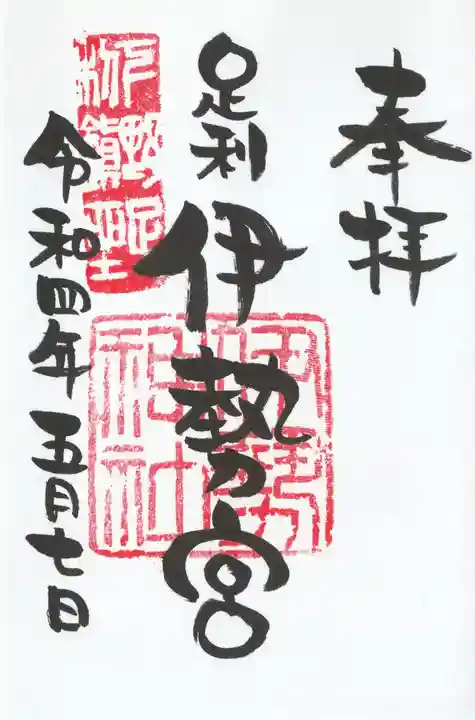 奉拝
足利
伊勢の宮
令和四年五月七日
伊勢
神社